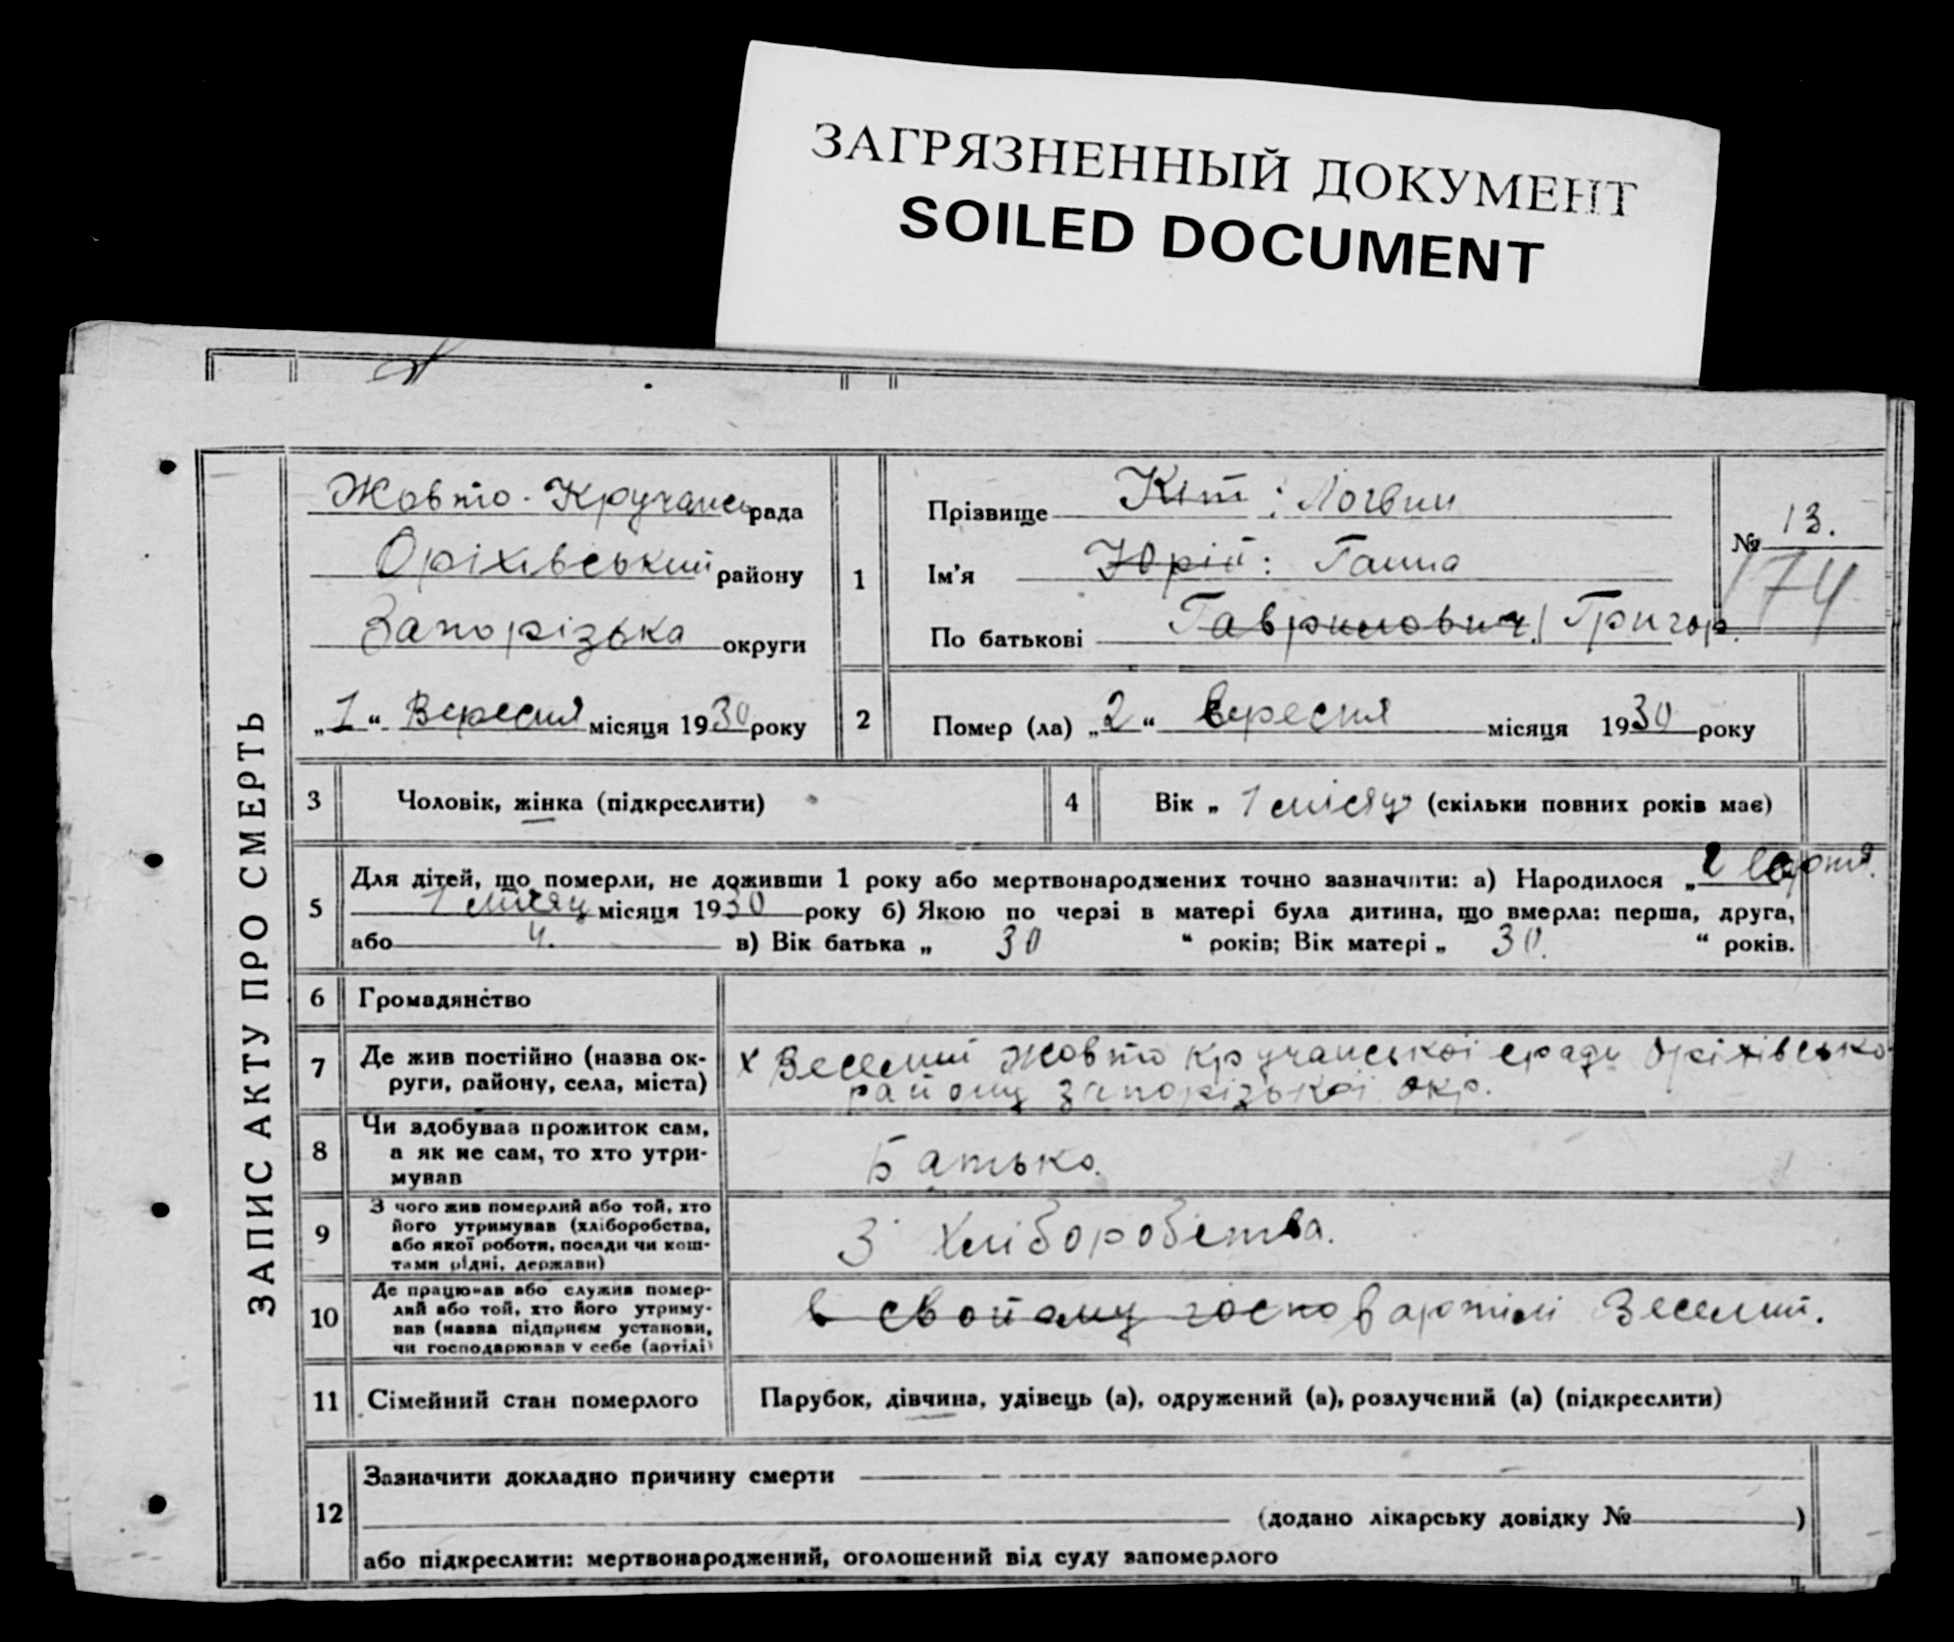 ЗАГРЯЗНЕННЫЙ ДОКУМЕНТ
SOILED DOCUMENT
ЗАПИС АКТУ ПРО СМЕРТЬ
Жовто-Кручансь рада
Оріхівський району
Запорізька округи
„1“ Вересня місяця 1930 року
1
Прізвище Кіт : Логвин
Ім'я Юрій : Ганна
По батькові Гаврилович / Григор.
№ 13.
174
2
Помер (ла) „2“ вересня місяця 1930 року
3 Чоловік, жінка (підкреслити)
4 Вік „ 1 місяц (скільки повних років має)
5 Для дітей, що померли, не доживши 1 року або мертвонароджених точно зазначити: а) Народилося „ 2 серпня.
1 місяц місяця 1930 року б) Якою по черзі в матері була дитина, що вмерла: перша, друга,
або 4. в) Вік батька „ 30 “ років; Вік матері „ 30. “ років.
6 Громадянство
7 Де жив постійно (назва ок-
руги, району, села, міста)
х Веселий Жовто Кручанської сради Оріхівсько
району Запорізької окр.
8 Чи здобував прожиток сам,
а як не сам, то хто утри-
мував
Батько.
9 З чого жив померлий або той, хто
його утримував (хліборобства,
або якої роботи, посади чи кош-
тами рідні, держави)
З хліборобства.
10 Де працював або служив помер-
лий або той, хто його утриму-
вав (назва підприєм установи,
чи господарював у себе (артілі)
в свойому госпо в артілі Веселий.
11 Сімейний стан померлого
Парубок, дівчина, удівець (а), одружений (а), розлучений (а) (підкреслити)
12 Зазначити докладно причину смерти
(додано лікарську довідку № )
або підкреслити: мертвонароджений, оголошений від суду запомерлого